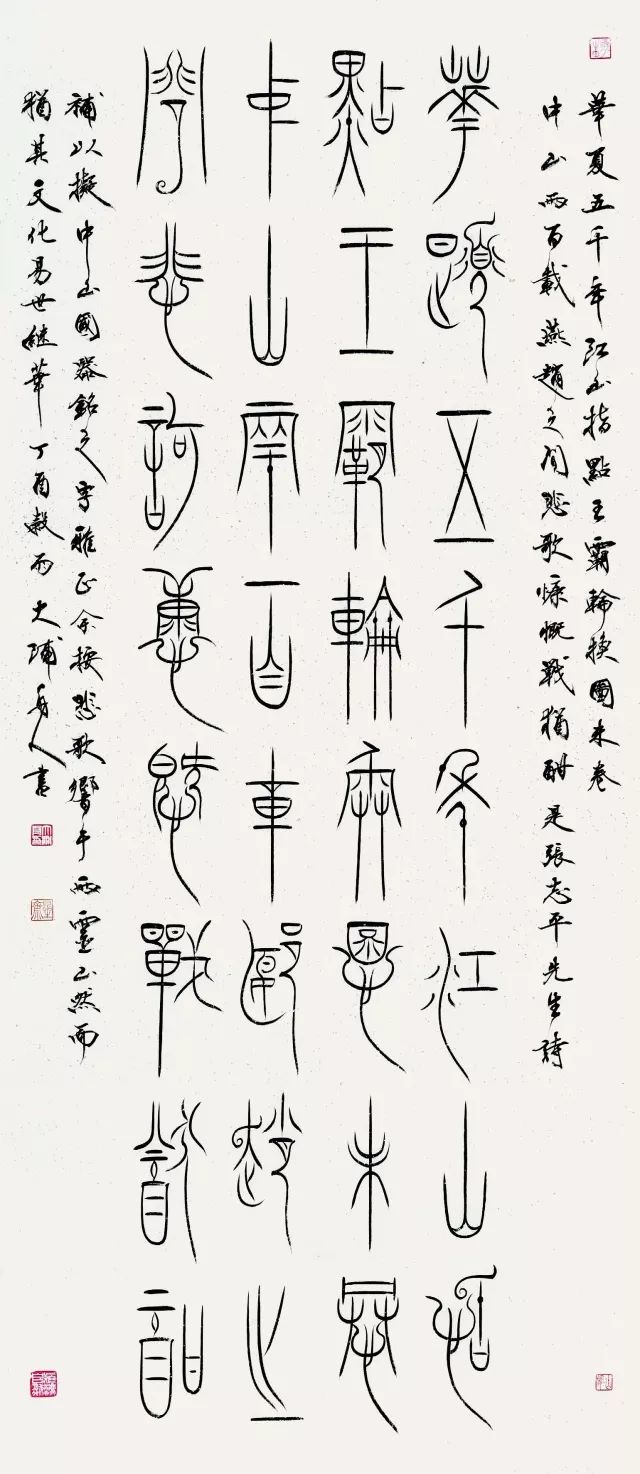 華夏五千年江山指點王霸輪換圖未卷
中山兩百載燕趙之間悲歌慷慨戰猶酣是張志平先生詩
華夏五千年江山指
點王霸輪換圖未卷
中山兩百載燕趙之
間悲歌慷慨戰猶酣
補以擬中山國器銘之字雅正余按悲歌響于兩靈山然而
猶其文化易世繼華丁酉穀雨大浦舟人書